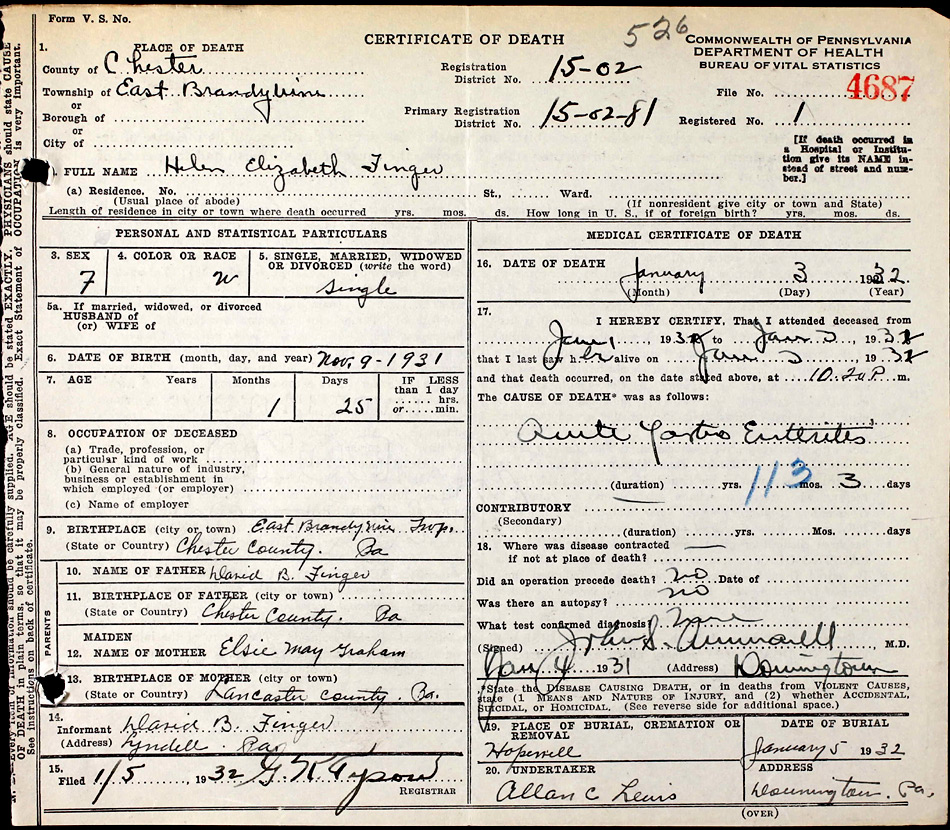 Form V. S. No.
CERTIFICATE OF DEATH
526
COMMONWEALTH OF PENNSYLVANIA
DEPARTMENT OF HEALTH
BUREAU OF VITAL STATISTICS
1. PLACE OF DEATH
County of Chester
Registration District No. 15-02
File No. 4687
Township of East Brandywine
or
Borough of
Primary Registration District No. 15-02-81
Registered No. 1
or
City of
[If death occurred in a Hospital or Institution give its NAME instead of street and number.]
FULL NAME Helen Elizabeth Finger
(a) Residence, No. St., Ward.
(Usual place of abode) (If nonresident give city or town and State)
Length of residence in city or town where death occurred yrs. mos. ds. How long in U. S., if of foreign birth? yrs. mos. ds.
PERSONAL AND STATISTICAL PARTICULARS
3. SEX F
4. COLOR OR RACE W
5. SINGLE, MARRIED, WIDOWED OR DIVORCED (write the word) Single
5a. If married, widowed, or divorced
HUSBAND of
(or) WIFE of
6. DATE OF BIRTH (month, day, and year) Nov. 9-1931
7. AGE Years Months Days IF LESS than 1 day
1 25 hrs. or min.
8. OCCUPATION OF DECEASED
(a) Trade, profession, or particular kind of work
(b) General nature of industry, business or establishment in which employed (or employer)
(c) Name of employer
9. BIRTHPLACE (city or town) East Brandywine Twp.
(State or Country) Chester County. Pa
PARENTS
10. NAME OF FATHER David B. Finger
11. BIRTHPLACE OF FATHER (city or town)
(State or Country) Chester County. Pa
12. MAIDEN NAME OF MOTHER Elsie May Graham
13. BIRTHPLACE OF MOTHER (city or town)
(State or Country) Lancaster County. Pa.
14. Informant David B. Finger
(Address) Lyndell Pa
15. Filed 1/5 1932
REGISTRAR
MEDICAL CERTIFICATE OF DEATH
16. DATE OF DEATH January 3 1932
(Month) (Day) (Year)
17. I HEREBY CERTIFY, That I attended deceased from
Jan 1 1932 to Jan 3, 1932
that I last saw her alive on Jan 3 1932
and that death occurred, on the date stated above, at 10.20 P. m.
The CAUSE OF DEATH* was as follows:
Acute Gastro Enteritis
113
(duration) yrs. mos. 3 days
CONTRIBUTORY
(Secondary)
(duration) yrs. Mos. days
18. Where was disease contracted
if not at place of death?
Did an operation precede death? no Date of
Was there an autopsy? no
What test confirmed diagnosis? None
(Signed) John S. M.D.
Jan 4 1931 (Address) Downingtown
*State the DISEASE CAUSING DEATH, or in deaths from VIOLENT CAUSES, state 1 MEANS AND NATURE OF INJURY, and (2) whether ACCIDENTAL, SUICIDAL, or HOMICIDAL. (See reverse side for additional space.)
19. PLACE OF BURIAL, CREMATION OR REMOVAL
Hopewell
DATE OF BURIAL
January 5 1932
20. UNDERTAKER
Allan C Lewis
ADDRESS
Downingtown. Pa.
(OVER)